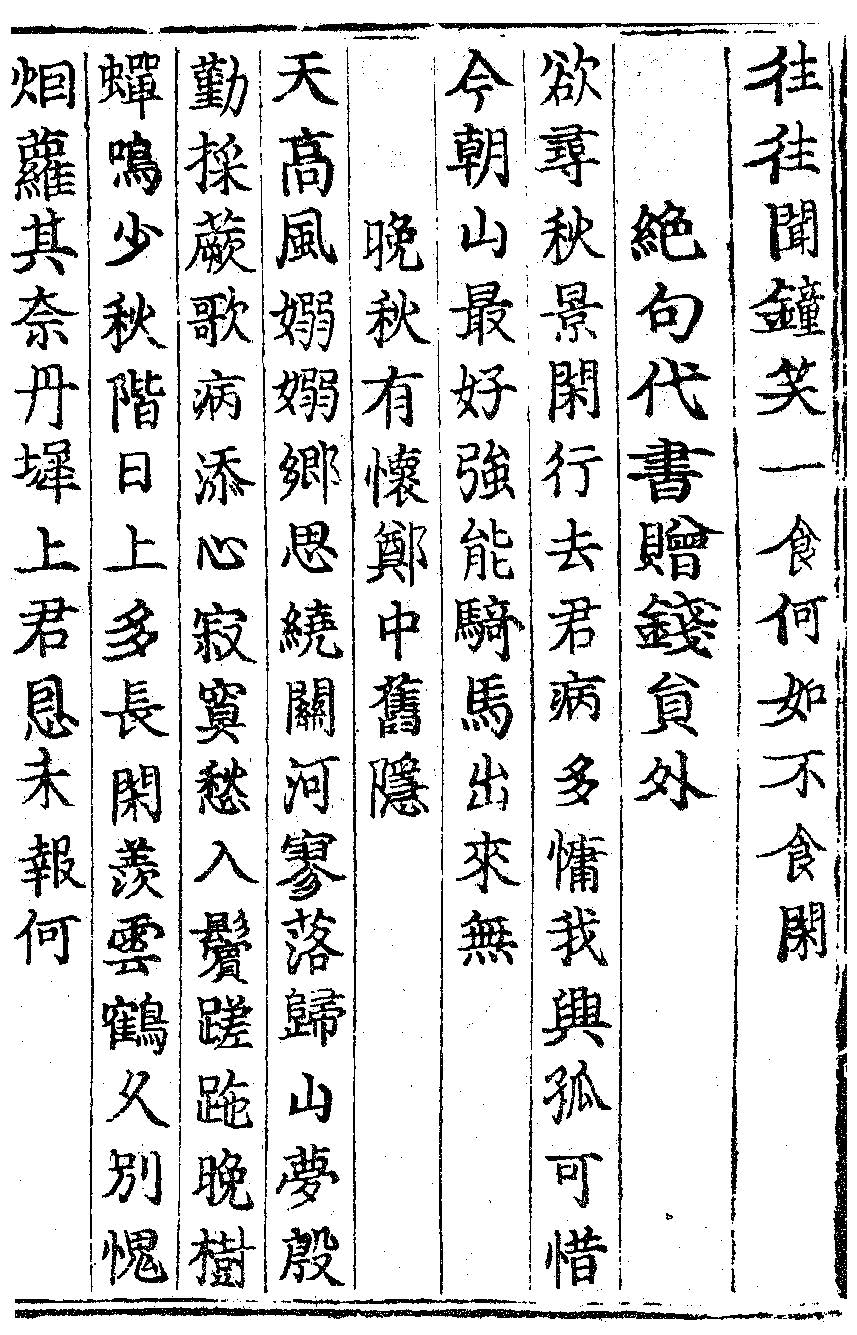 往往聞鐘笑一食何如不食閑
絶句代書贈錢貟外
欲尋秋景閑行去君病多慵我興孤可惜
今朝山最好強能騎馬出來無
晚秋有懷鄭中舊隱
天高風嫋嫋鄉思繞關河寥落歸山夢殷
勤採蕨歌病添心寂寞愁入鬢蹉跎晚樹
蟬鳴少秋階日上多長閑羨雲鶴久別愧
烟蘿其奈丹墀上君恩未報何